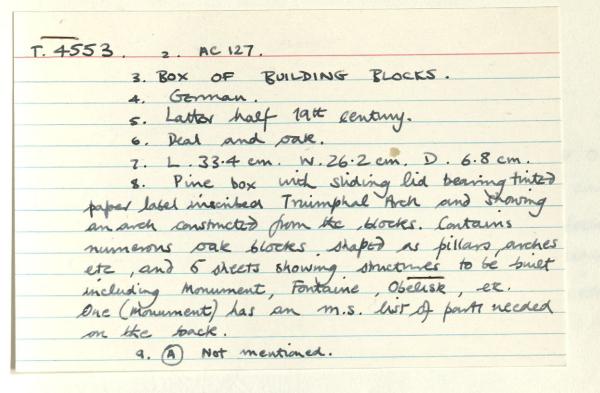 T. 4553. 2. AC 127.
3. BOX OF BUILDING BLOCKS.
4. German.
5. Latter half 19th century.
6. Deal and oak.
7. L. 33.4 cm. W. 26.2 cm. D. 6.8 cm.
8. Pine box with sliding lid bearing tinted
paper label inscribed Triumphal Arch and showing
an arch constructed from the blocks. Contains
numerous oak blocks shaped as pillars, arches
etc, and 5 sheets showing structures to be built
including Monument, Fontaine, Obelisk, etc.
One (Monument) has an m.s. list of parts needed
on the back.
9. (A) Not mentioned.